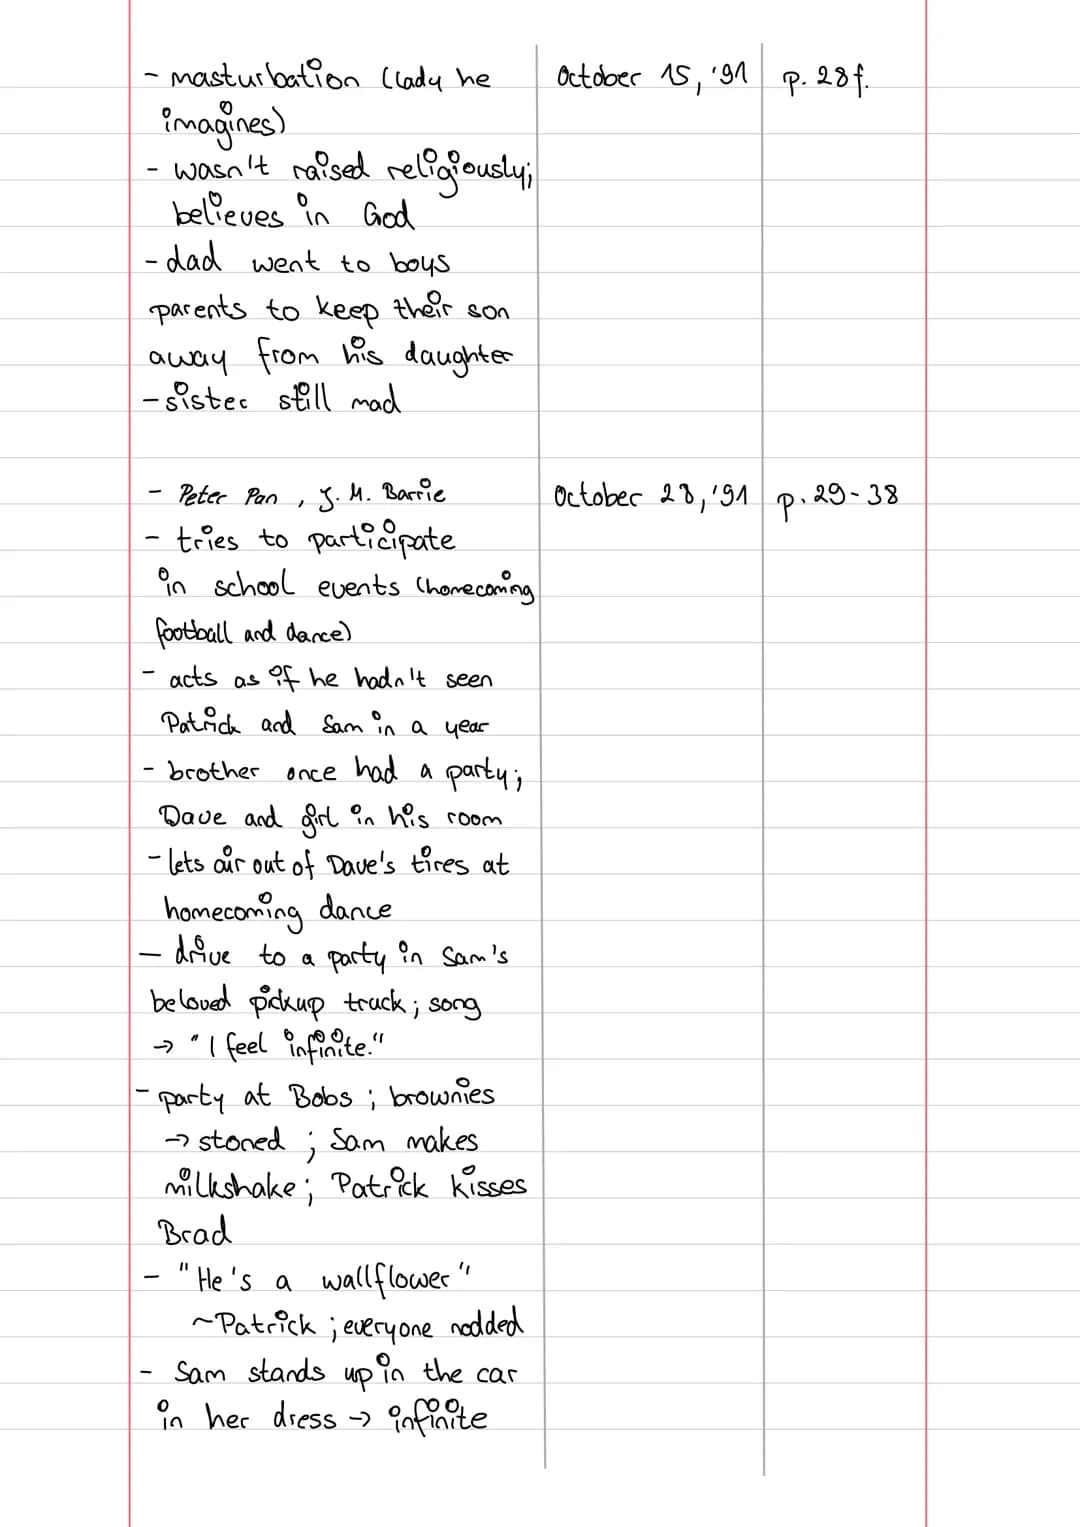 - masturbation (lady he October 15, '91 p. 28f.
imagines)
- wasn't raised religiously;
believes in God
- dad went to boys
parents to keep their son
away from his daughter
- sister still mad
- Peter Pan, J. M. Barrie October 28, '91 p. 29-38
- tries to participate
in school events (homecoming
football and dance)
- acts as if he hadn't seen
Patrick and Sam in a year
- brother once had a party;
Dave and girl in his room
- lets air out of Dave's tires at
homecoming dance
- drive to a party in Sam's
beloved pickup truck; song
→ "I feel infinite."
- party at Bobs; brownies
→ stoned; Sam makes
milkshake; Patrick kisses
Brad
- "He's a wallflower"
~Patrick; everyone nodded
- Sam stands up in the car
in her dress → infinite